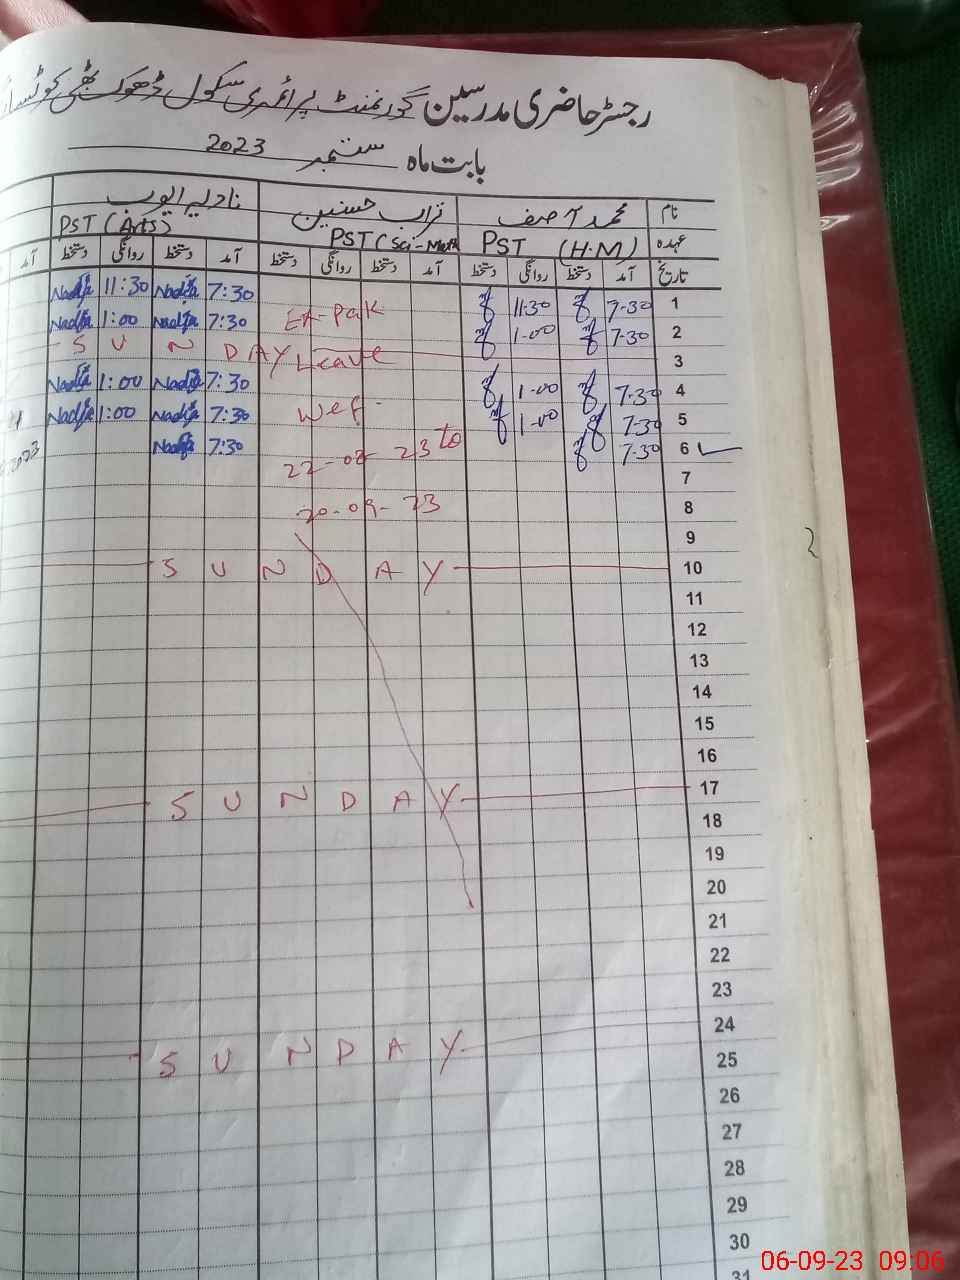 رجسٹر حاضری مدرسین گورنمنٹ پرائمری سکول ڈھوک بھٹی
بابت ماہ ستمبر 2023
نام محمد آصف تراب حسنین نادیہ ایوب
عہدہ PST (H.M) PST (Sci-Math PST (Arts)
تاریخ آمد دستخط روانگی دستخط آمد دستخط روانگی دستخط آمد دستخط روانگی دستخط آمد
1 7-30 11-30 7:30 Nadia 11:30 Nadia
2 7-30 1-00 Ex-Pak 7:30 Nadia 1:00 Nadia
3 SUNDAY Leave
4 7-30 1-00 7:30 Nadia 1:00 Nadia
5 7-30 1-00 wef 7:30 Nadia 1:00 Nadia
6 7-30 23 to 7:30 Nadia
7
8 20-09-23
9
10 SUNDAY
11
12
13
14
15
16
17 SUNDAY
18
19
20
21
22
23
24 SUNDAY
25
26
27
28
29
30
31
06-09-23 09:06